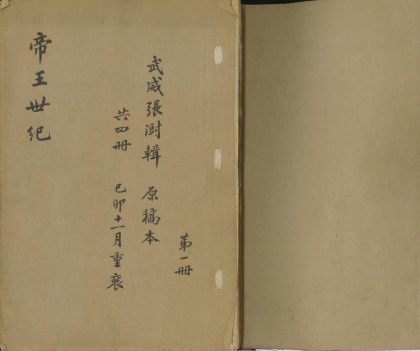 帝王世纪
武威張澍輯 原稿本
共四冊 己卯十一月重裝
第一冊